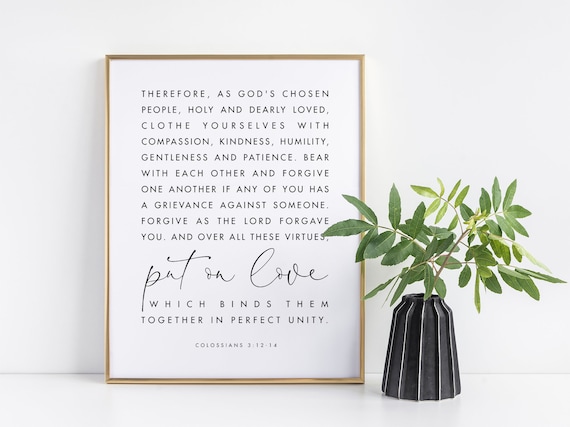 THEREFORE, AS GOD'S CHOSEN
PEOPLE, HOLY AND DEARLY LOVED,
CLOTHE YOURSELVES WITH
COMPASSION, KINDNESS, HUMILITY,
GENTLENESS AND PATIENCE. BEAR
WITH EACH OTHER AND FORGIVE
ONE ANOTHER IF ANY OF YOU HAS
A GRIEVANCE AGAINST SOMEONE.
FORGIVE AS THE LORD FORGAVE
YOU. AND OVER ALL THESE VIRTUES,
put on love
WHICH BINDS THEM
TOGETHER IN PERFECT UNITY.
COLOSSIANS 3:12-14